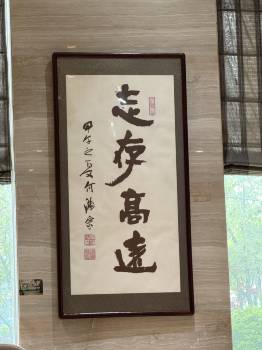 志存高遠
甲午之夏何満宗